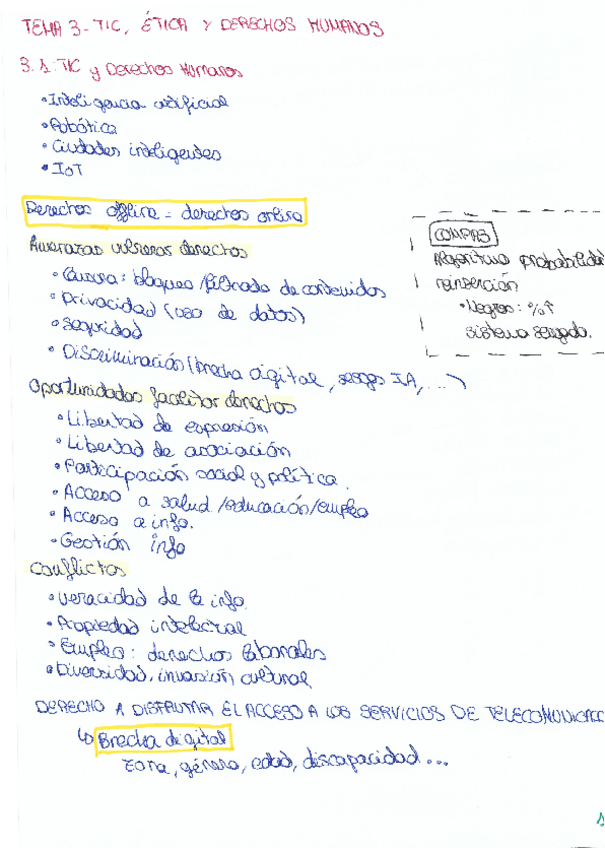 TEMA 3- TIC, ÉTICA Y DERECHOS HUMANOS
3.1. TIC y Derechos Humanos
• Inteligencia artificial
• Robótica
• Ciudades inteligentes
• IoT
Derechos offline = derechos online
Amenazas vulneran derechos
• Censura: bloqueo/filtrado de contenidos
• Privacidad (uso de datos)
• Seguridad
• Discriminación (brecha digital, sesgos IA, ...)
COMPAS
Algoritmo probabilidad
reinserción
• Negros: %↑
sistema sesgado.
Oportunidades facilitar derechos
• Libertad de expresión
• Libertad de asociación
• Participación social y política.
• Acceso a salud/educación/empleo
• Acceso a info.
• Gestión info
Conflictos
• Veracidad de la info.
• Propiedad intelectual
• Empleo: derechos laborales
• Diversidad, invasión cultural
DERECHO A DISFRUTAR EL ACCESO A LOS SERVICIOS DE TELECOMUNICAC
↳ Brecha digital
zona, género, edad, discapacidad...